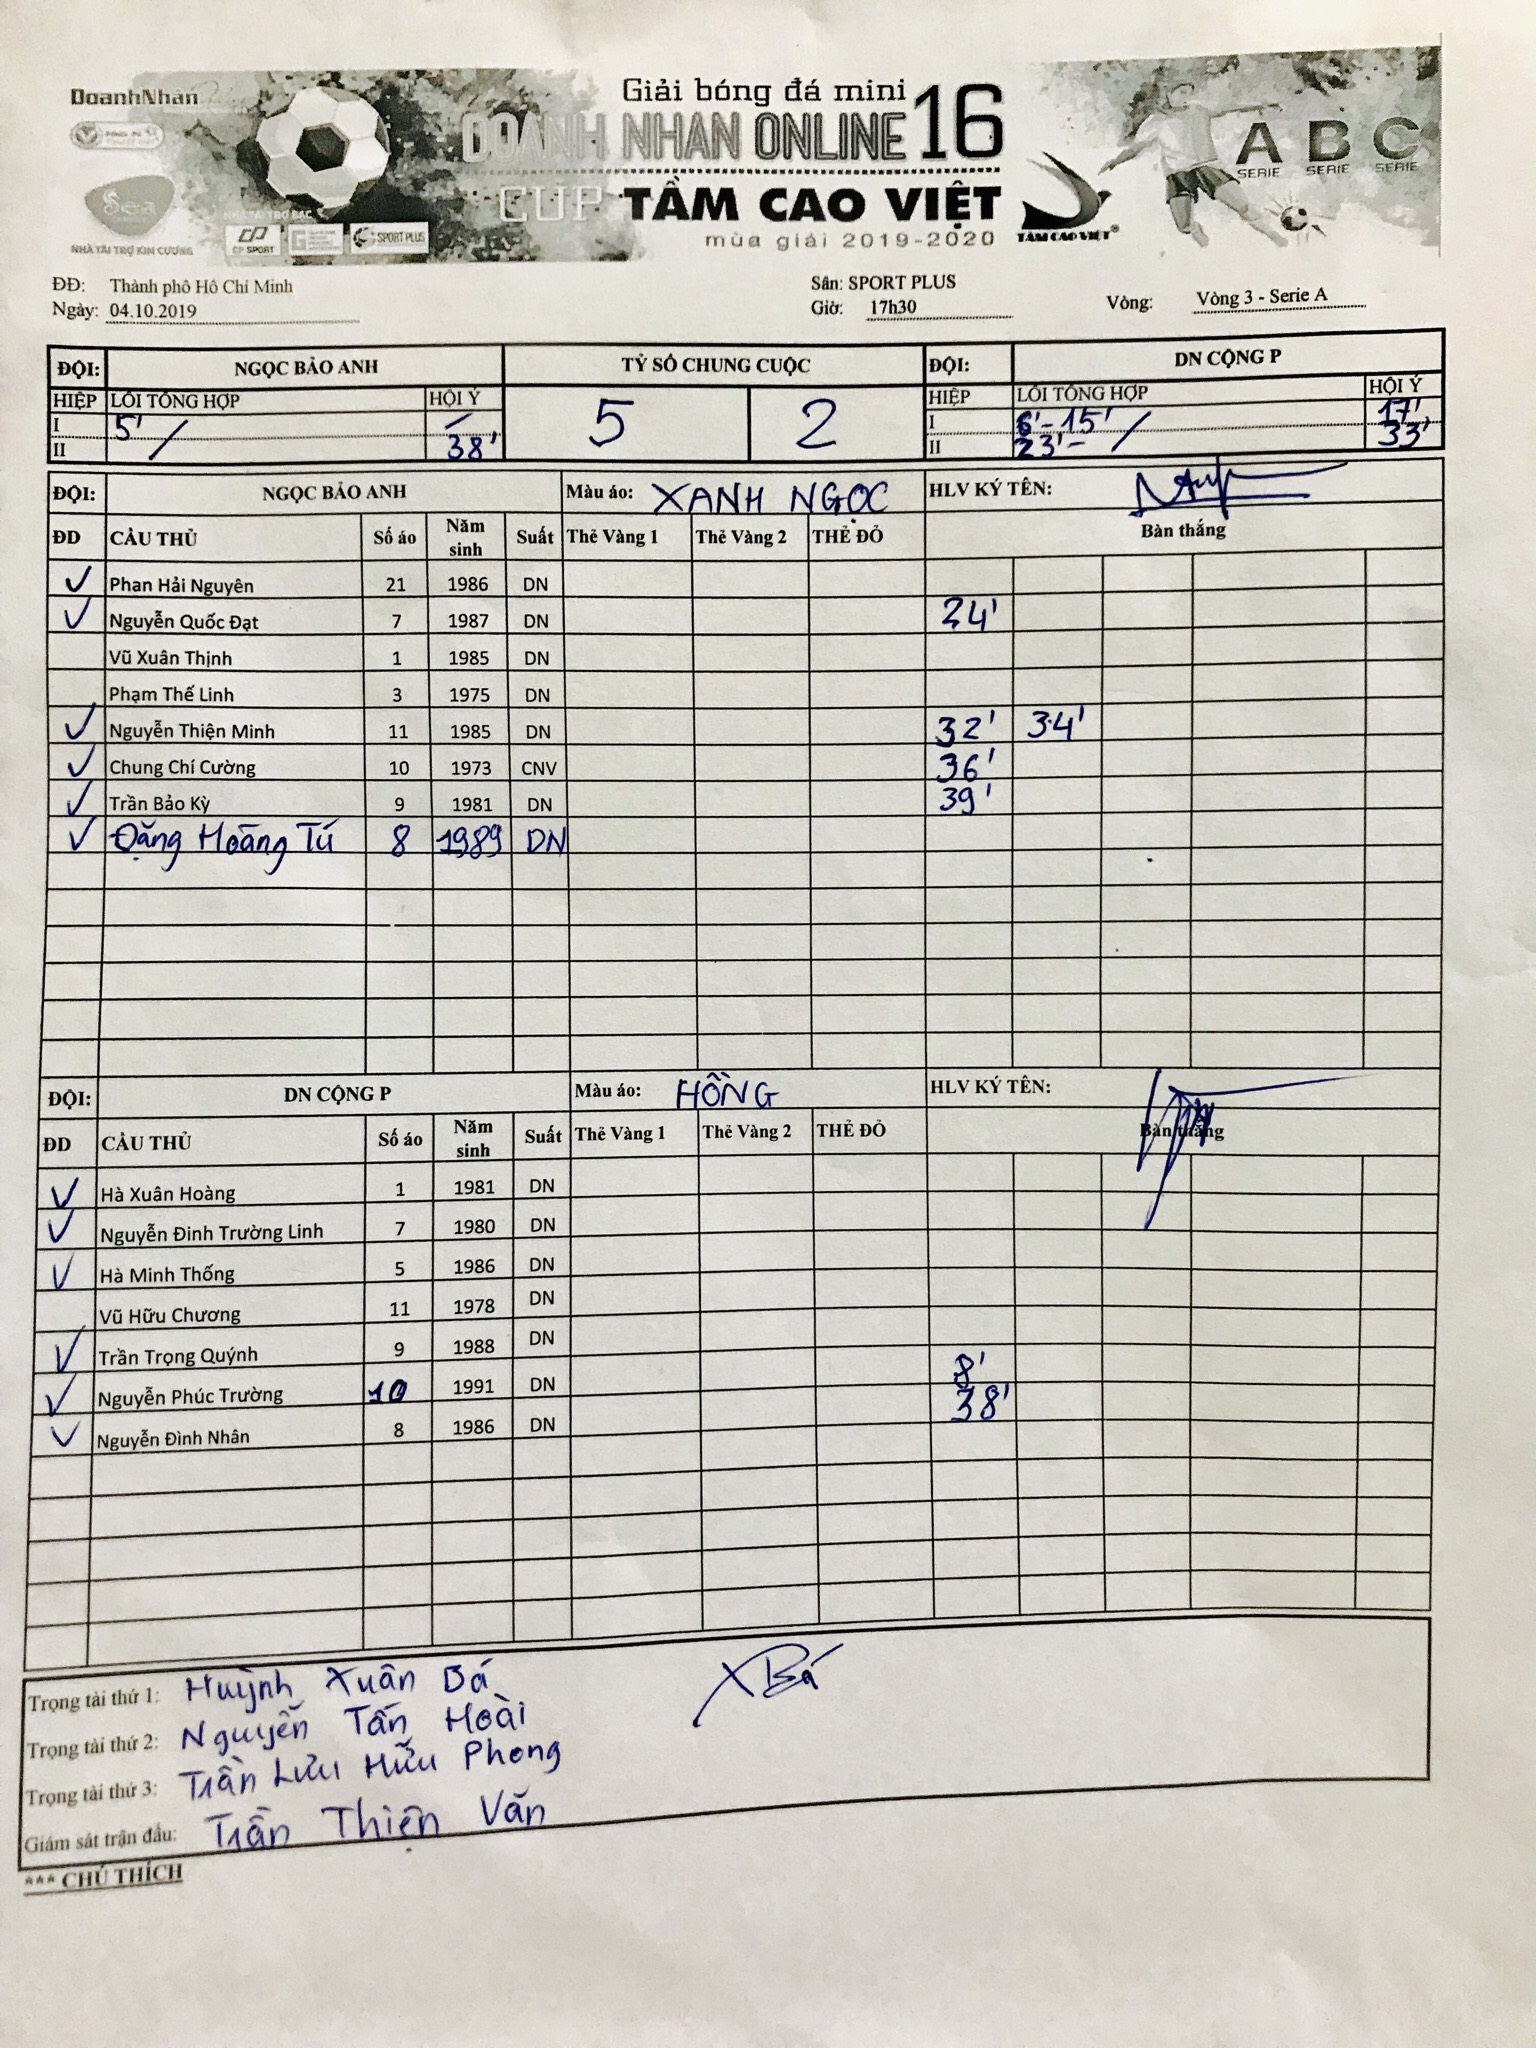 DoanhNhân
Giải bóng đá mini
DOANH NHAN ONLINE 16
CUP TẦM CAO VIỆT
mùa giải 2019-2020
A B C
SERIE SERIE SERIE
Sea
NHÀ TÀI TRỢ KIM CƯƠNG
NHÀ TÀI TRỢ BẠC
CP SPORT
SPORT PLUS
TẦM CAO VIỆT®
ĐĐ: Thành phố Hồ Chí Minh Sân: SPORT PLUS
Ngày: 04.10.2019 Giờ: 17h30 Vòng: Vòng 3 - Serie A
ĐỘI: NGỌC BẢO ANH TỶ SỐ CHUNG CUỘC ĐỘI: DN CỘNG P
HIỆP LỖI TỔNG HỢP HỘI Ý 5 2 HIỆP LỖI TỔNG HỢP HỘI Ý
I 5' / I 6'-15' / 17'
II 38' II 23'- 33'
ĐỘI: NGỌC BẢO ANH Màu áo: XANH NGỌC HLV KÝ TÊN:
ĐD CẦU THỦ Số áo Năm sinh Suất Thẻ Vàng 1 Thẻ Vàng 2 THẺ ĐỎ Bàn thắng
✓ Phan Hải Nguyên 21 1986 DN
✓ Nguyễn Quốc Đạt 7 1987 DN 24'
Vũ Xuân Thịnh 1 1985 DN
Phạm Thế Linh 3 1975 DN
✓ Nguyễn Thiện Minh 11 1985 DN 32' 34'
✓ Chung Chí Cường 10 1973 CNV 36'
✓ Trần Bảo Kỳ 9 1981 DN 39'
✓ Đặng Hoàng Tú 8 1989 DN
ĐỘI: DN CỘNG P Màu áo: HỒNG HLV KÝ TÊN:
ĐD CẦU THỦ Số áo Năm sinh Suất Thẻ Vàng 1 Thẻ Vàng 2 THẺ ĐỎ Bàn thắng
✓ Hà Xuân Hoàng 1 1981 DN
✓ Nguyễn Đinh Trường Linh 7 1980 DN
✓ Hà Minh Thống 5 1986 DN
Vũ Hữu Chương 11 1978 DN
✓ Trần Trọng Quýnh 9 1988 DN 8'
✓ Nguyễn Phúc Trường 10 1991 DN 38'
✓ Nguyễn Đình Nhân 8 1986 DN
Trọng tài thứ 1: Huỳnh Xuân Bá XBá
Trọng tài thứ 2: Nguyễn Tấn Hoài
Trọng tài thứ 3: Trần Lưu Hữu Phong
Giám sát trận đấu: Trần Thiện Văn
*** CHÚ THÍCH